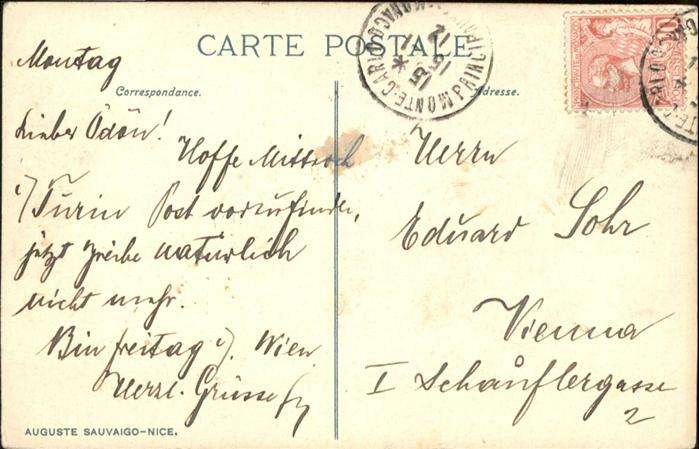 CARTE POSTALE
MONTE-CARLO
PRINCIPAUTÉ
Correspondance.
Adresse.
Montag
Lieber Ödön!
Hoffe Mittwoch
i/ Turin Post vorzufinden,
jetzt natürlich
nicht mehr.
Bin freitag i/. Wien
Herzl. Grüsse
AUGUSTE SAUVAIGO-NICE.
Herrn
Eduard Sohr
Vienna
I Schauflergasse
2